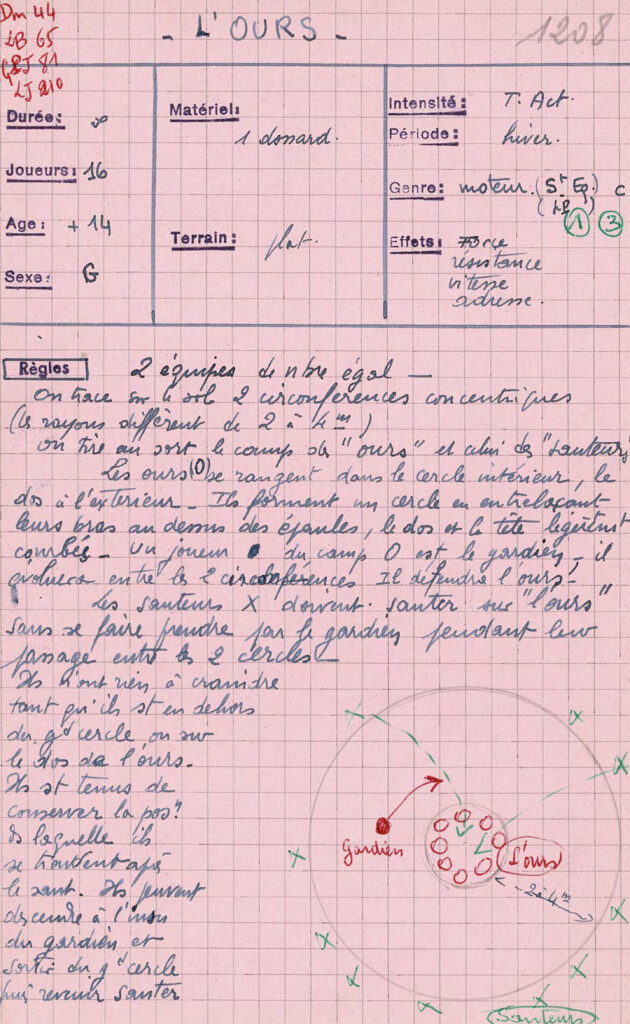 Dm 44
LB 65
LJ 81
LJ 210
- L'OURS -
1208
Durée: ∞
Joueurs: 16
Age: + 14
Sexe: G
Matériel:
1 dossard.
Terrain: plat.
Intensité: T. Act.
Période: hiver.
Genre: moteur. (St Eq.) C
(LB)
1 3
Effets: Force
résistance
vitesse
adresse.
Règles 2 équipes de nbre égal —
On trace sur le sol 2 circonférences concentriques
(les rayons diffèrent de 2 à 4 m)
On tire au sort le camp des "ours" et celui des "sauteurs"
Les ours (O) se rangent dans le cercle intérieur, le
dos à l'extérieur - Ils forment un cercle en entrelaçant
leurs bras au dessus des épaules, le dos et la tête légèremt
courbés - Un joueur du camp O est le gardien, il
évoluera entre les 2 circonférences Il défendra l'ours!
Les sauteurs X doivent sauter sur "l'ours"
sans se faire prendre par le gardien pendant leur
passage entre les 2 cercles -
Ils n'ont rien à craindre
tant qu'ils st en dehors
du gd cercle ou sur
le dos de l'ours.
Ils st tenus de
conserver la pos°
ds laquelle ils
se trouvent aps
le saut. Ils peuvent
descendre à l'insu
du gardien et
sortir du gd cercle
puis revenir sauter
Gardien
l'ours
2 à 4 m
Sauteurs